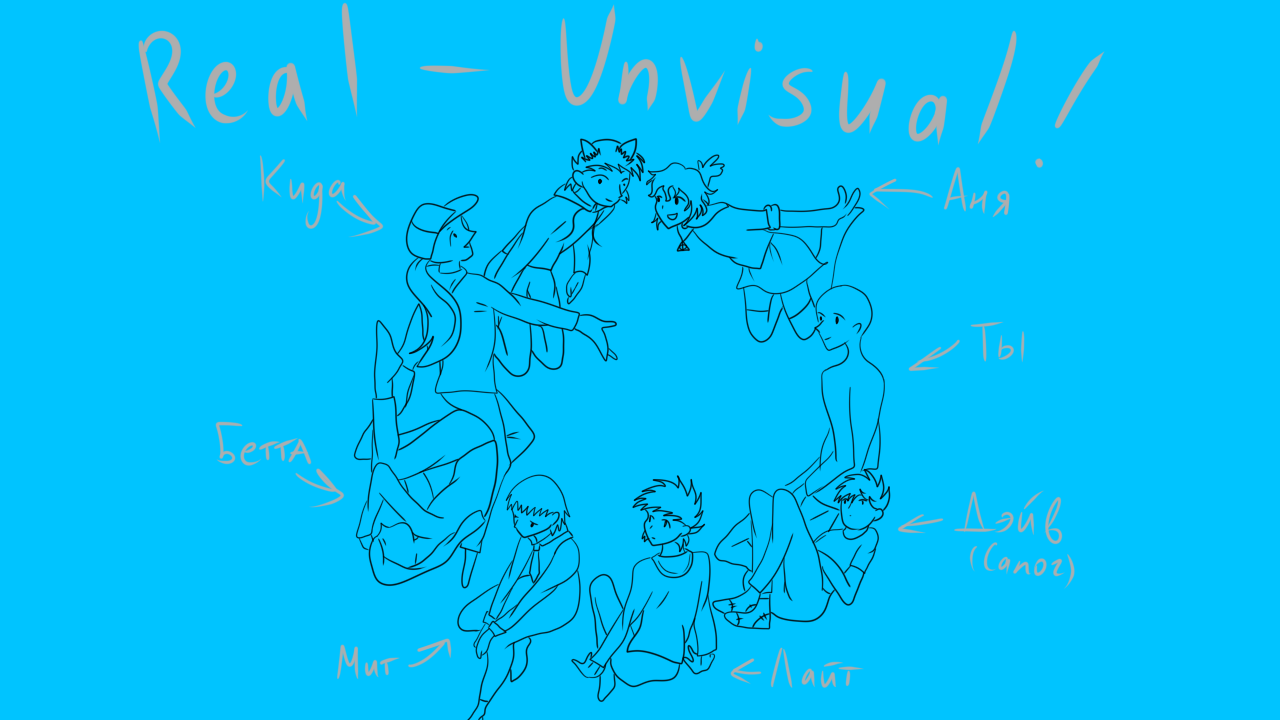 Real - Unvisual!
Кида
Аня
Ты
Бетта
Дэйв
(Сапог)
Мит
Лайт